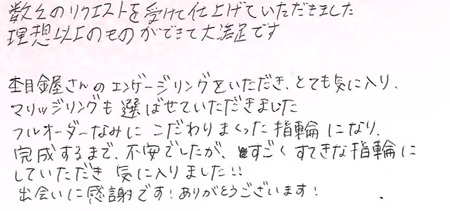 数々のリクエストを受けて仕上げていただきました
理想以上のものができて大満足です
杢目金屋さんのエンゲージリングをいただき、とても気に入り、
マリッジリングも選ばせていただきました
フルオーダーなみにこだわりまくった指輪になり、
完成するまで、不安でしたが、すごくすてきな指輪に
していただき 気に入りました!!
出会いに感謝です!ありがとうございます!